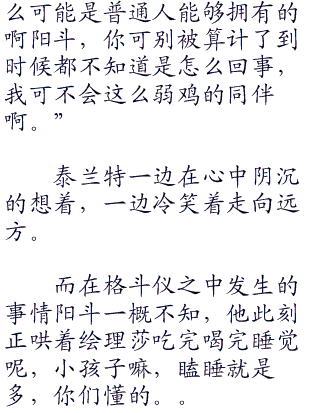 么可能是普通人能够拥有的
啊阳斗，你可别被算计了到
时候都不知道是怎么回事，
我可不会这么弱鸡的同伴
啊。”
泰兰特一边在心中阴沉
的想着，一边冷笑着走向远
方。
而在格斗仪之中发生的
事情阳斗一概不知，他此刻
正哄着绘理莎吃完喝完睡觉
呢，小孩子嘛，瞌睡就是
多，你们懂的。。